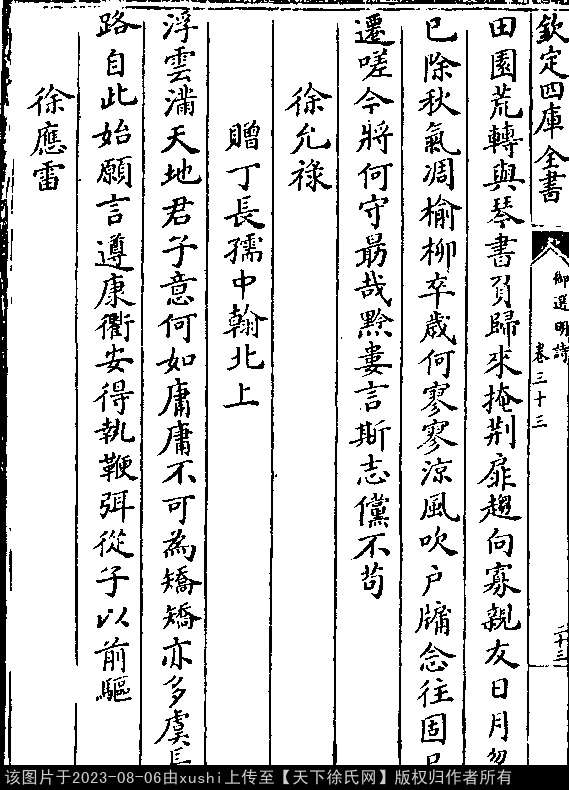 欽定四庫全書
御選明詩
卷三十三
二十三
田園荒轉與琴書負歸來掩荆扉趨向寡親友日月忽
已除秋氣凋榆柳卒歲何寥寥涼風吹戶牖念往固已
遷嗟今將何守勗哉黔婁言斯志儻不苟
徐允祿
贈丁長孺中翰北上
浮雲滿天地君子意何如庸庸不可為矯矯亦多虞長
路自此始願言遵康衢安得執鞭弭從子以前驅
徐應雷
该图片于2023-08-06由xushi上传至【天下徐氏网】版权归作者所有